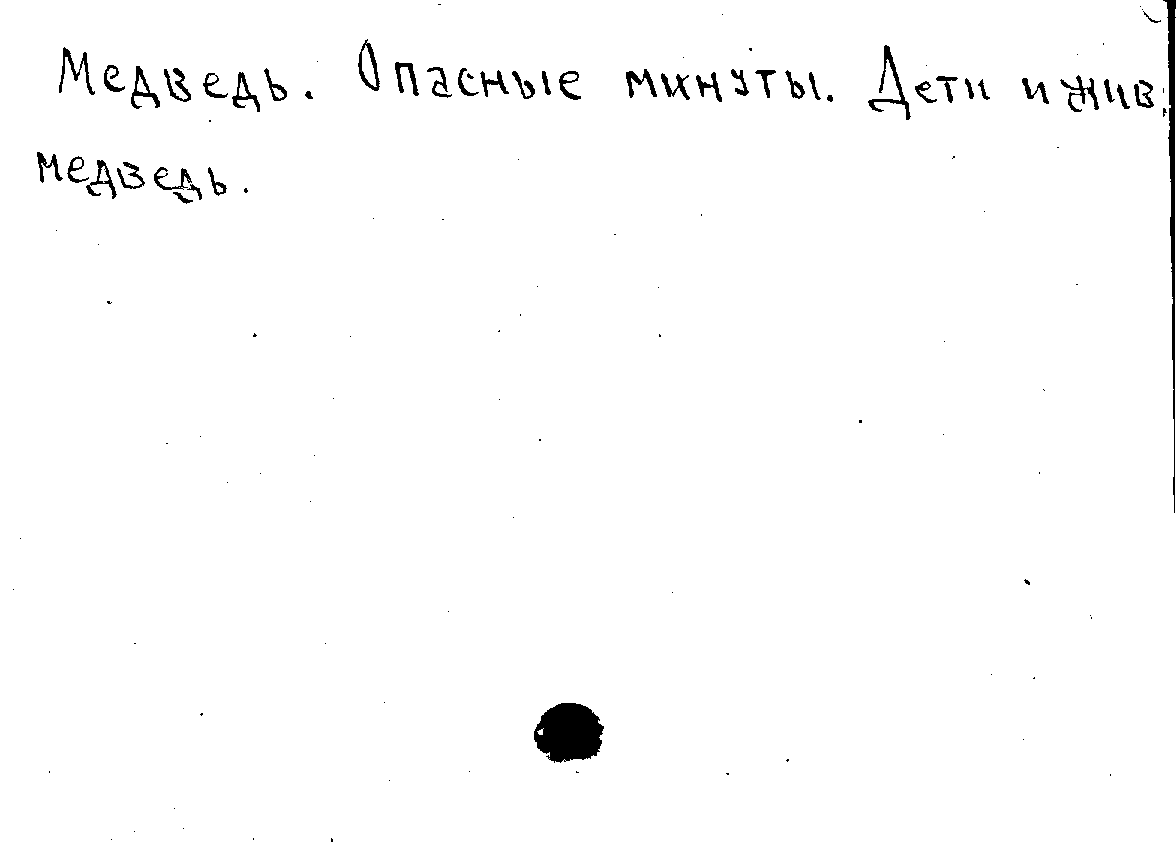 Медведь. Опасные минуты. Дети и жив.
медведь.